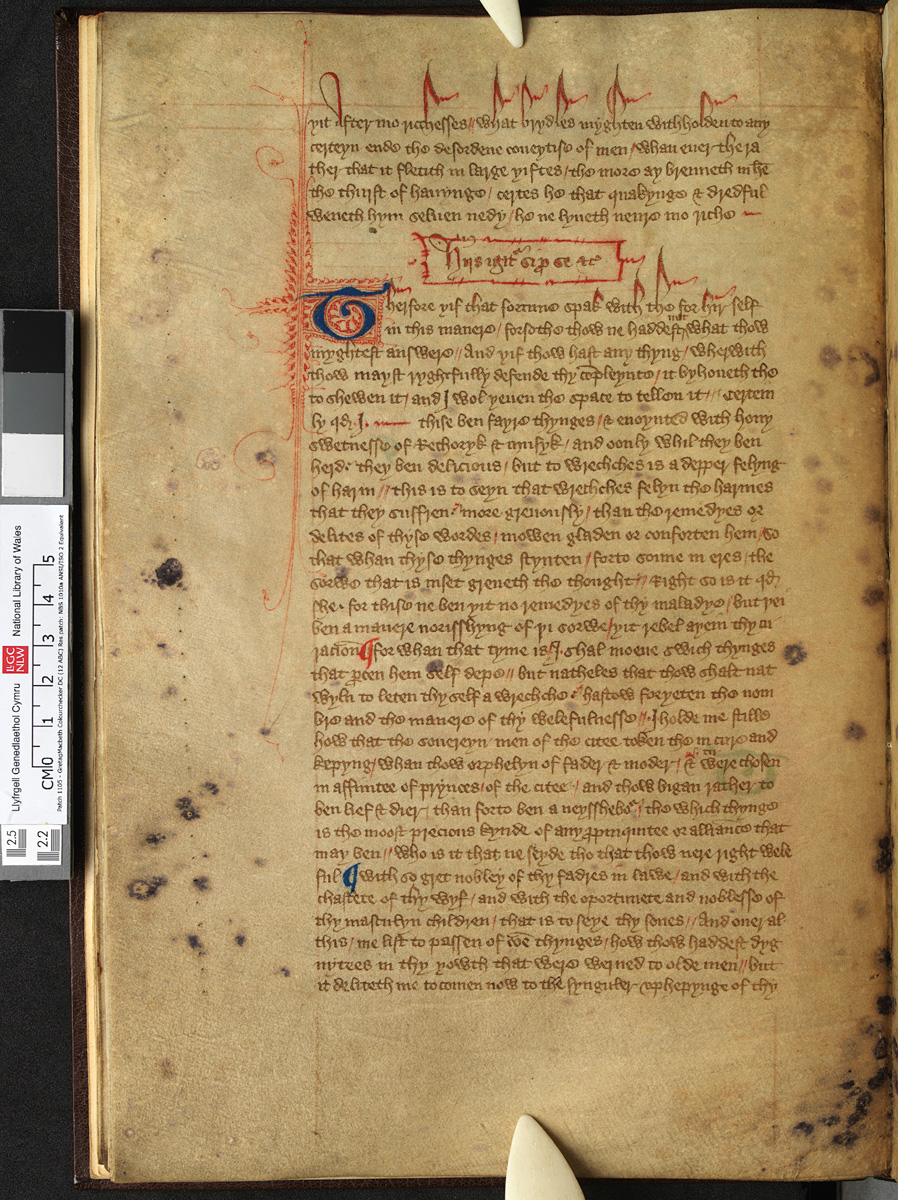 yit after mo ricchesses // what brydles myghten withholden to any
certeyn ende the desordene coueytise of men / whan euer the ra
ther that it fletith in large yiftes / the more ay brenneth in hē
the thurst of hauynge / certes he that quakynge & dredful
weneth hym seluen nedy / he ne lyueth neuere mo riche
Hiis igitᵃ si ꝓ se &c
Therfore yif that fortune spak with the for hir self
in this manere / forsothe thow ne haddest nat what thow
myghtest answere // And yif thow hast any thyng / wherwith
thow mayst ryghtfully defende thy cōpleynte / it byhoueth the
to shewen it / and I wol yeuen the space to tellen it // Certein
ly qd̛. I. thise ben fayre thynges / & enoynted with hony
swetnesse of Rethoryk & musyk / and oonly whil they ben
herd. they ben delicious / but to wrechches is a depper felyng
of harm // this is to seyn that wrechches felyn the harmes
that they suffren more greuously / than the remedyes or
delites of thyse wordes / mowen gladen or conforten hem / so
that whan thyse thynges stynten / forto soune in eres / the
sorwe that is inset greueth the thought // Right so is it qd̛
she. for thise ne ben yit no remedyes of thy maladye / but þei
ben a manere norisshyng of þi sorwe / yit rebel ayein thy cu
racion ¶ for whan that tyme is / .I. shal moeue swich thynges
that ꝑcen hem self depe // but natheles that thow shalt nat
wyln to leten thy self a wrechche / hastow foryeten the nom
bre and the manere of thy welefulnesse // .I holde me stille
how that the souereyn men of the citee token the in cure and
kepyng / whan thow orphelyn of fader & moder / & were chosen
in affinitee of prynces / of the citee / and thow bigan rather to
ben lief & dier / than forto ben a neysshebor̛ / the which thynge
is the moost precious kynde of any ꝓpinquitee or alliance that
may ben // who is it that ne seyde tho that thow nere right wele
ful ¶ with so gret nobley of thy fadres in lawe / and with the
chastete of thy wyf / and with the oportunete and noblesse of
thy masculyn children / that is to seye thy sones // And ouer al
this / me list to passen of cōe thynges / how thow haddest dyg
nytees in thy yowth that were werned to olde men // but
it deliteth me to comen now to the synguler vphepynge of thy
Llyfrgell Genedlaethol Cymru National Library of Wales
LlGC
NLW
CM 0 1 2 3 4 5
2.5
2.2